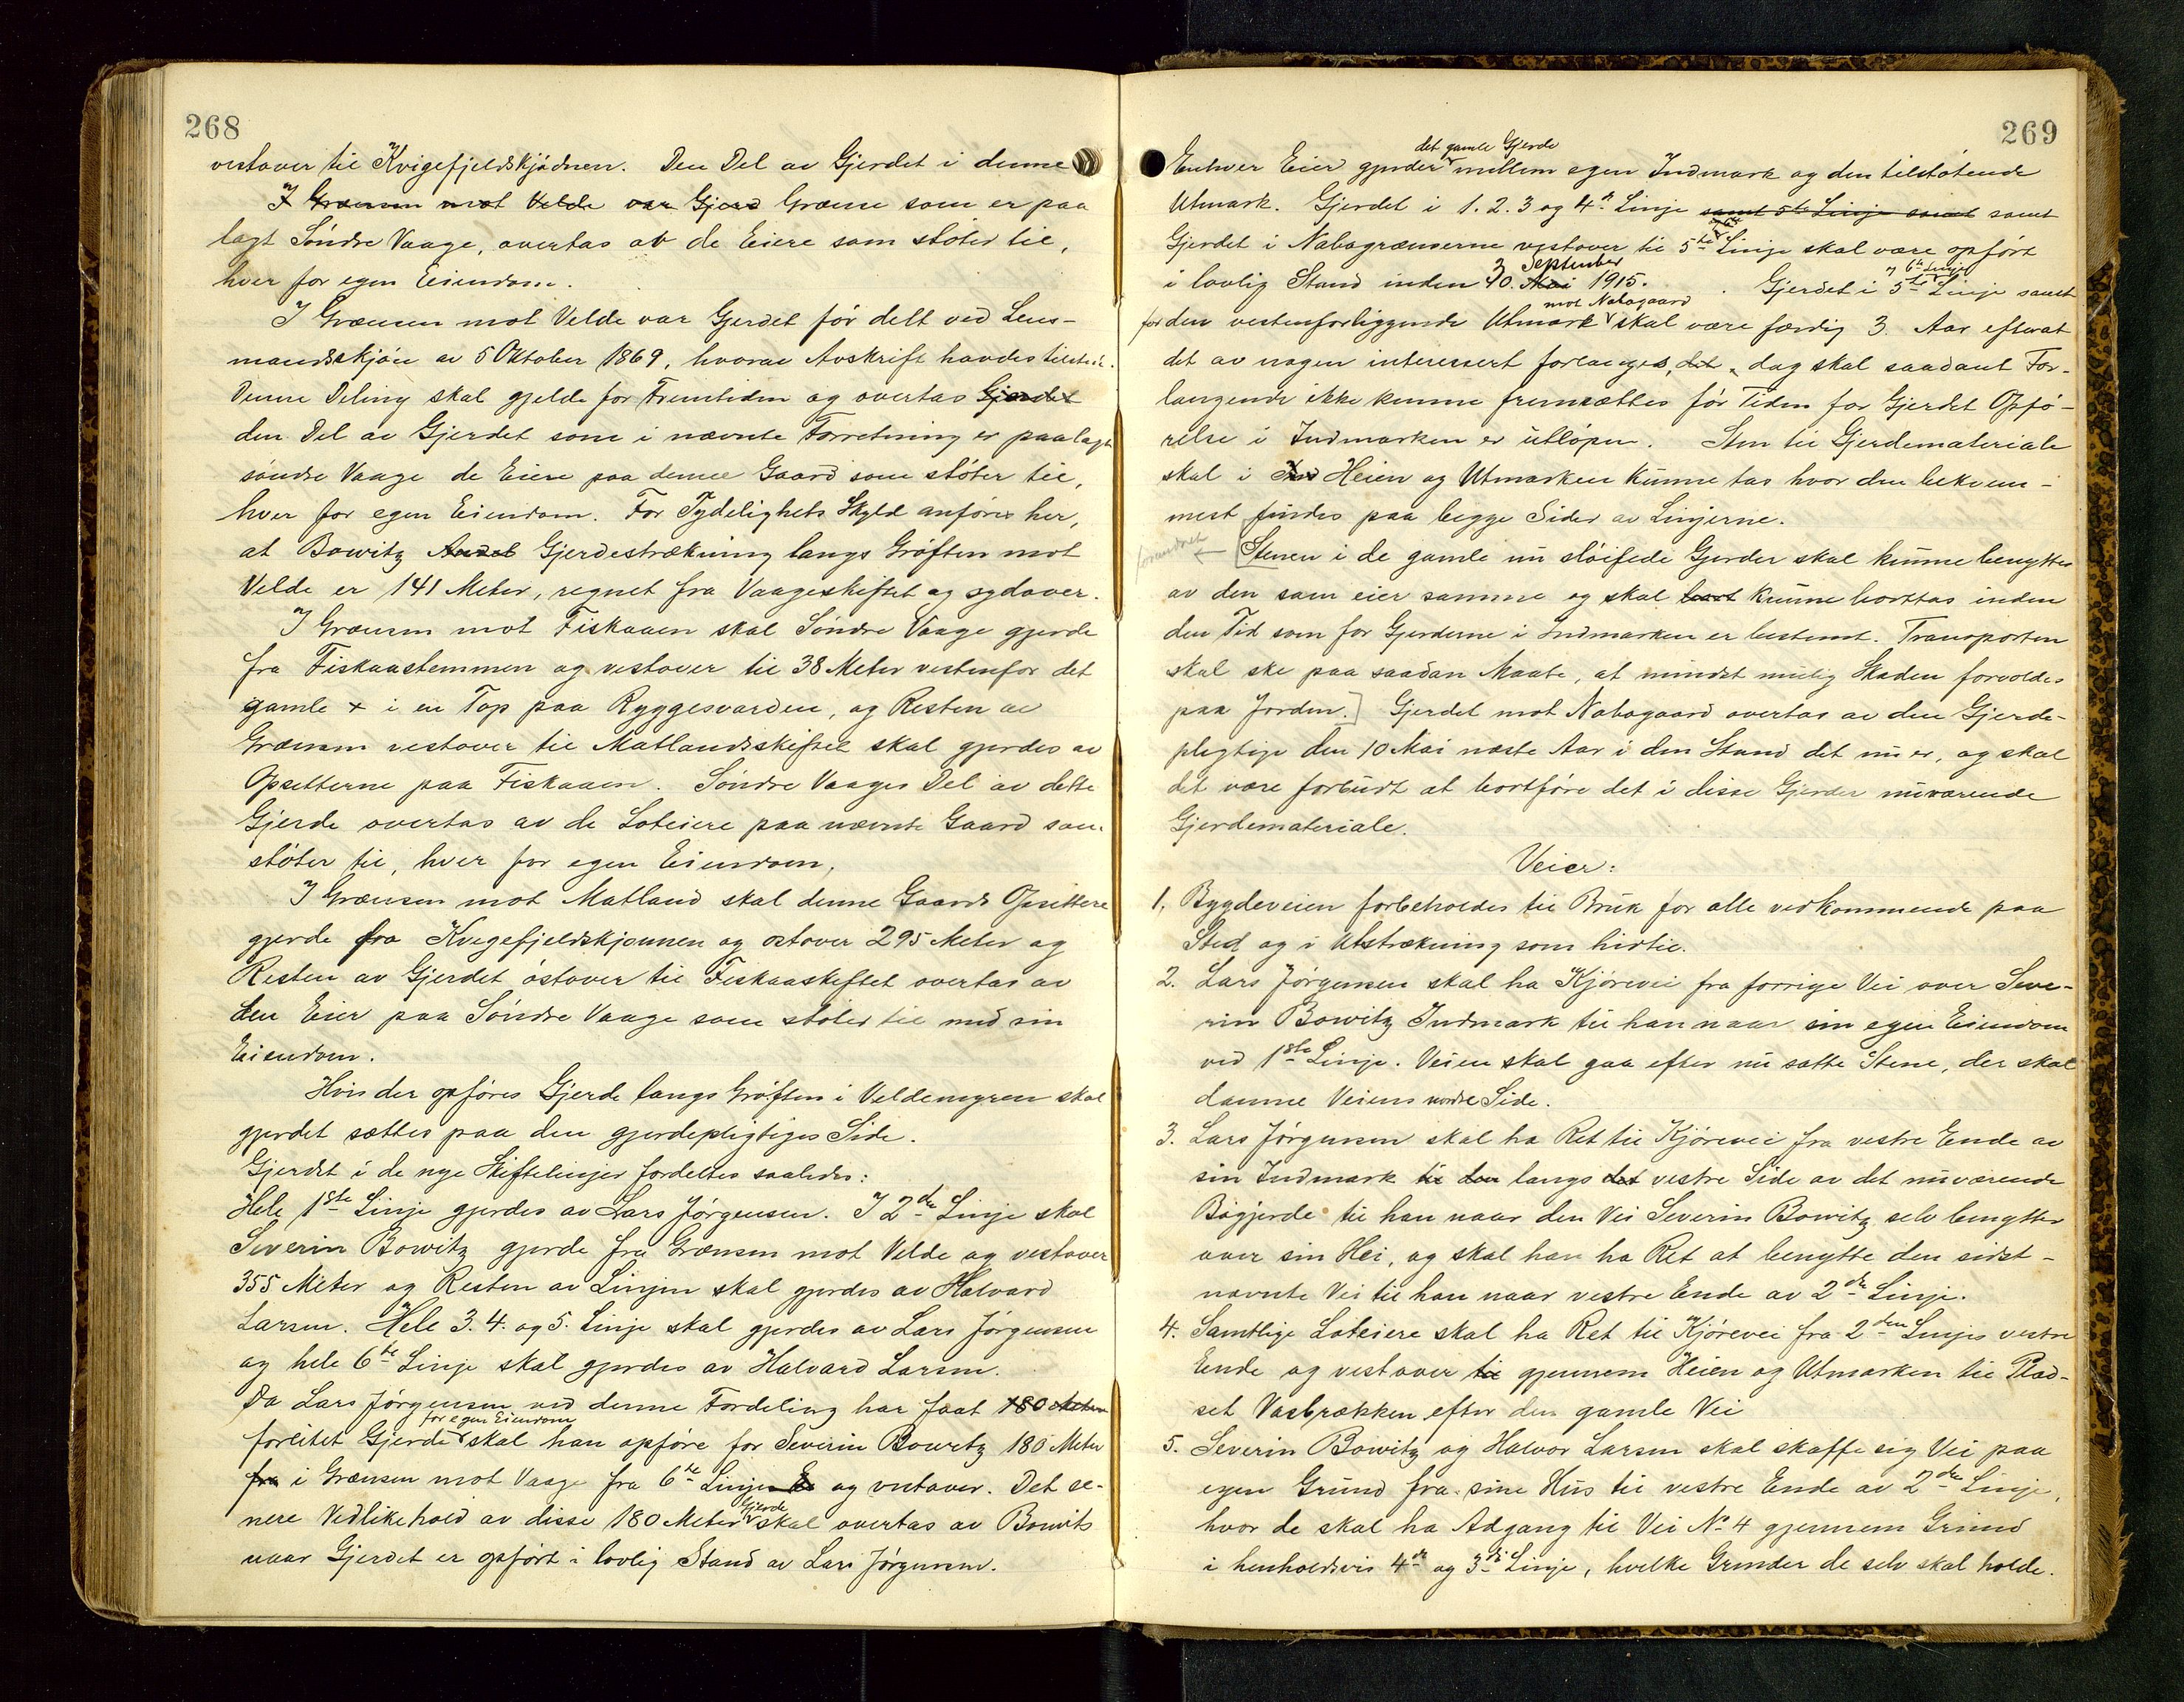 268
vestover til Kvigefjeldskjødnen. Den Del av Gjerdet i denne
I Grænsen mot Velde var Gjerd Grænse som er paa
lagt Søndre Vaage, overtas av de Eiere som støter til,
hver for egen Eiendom.
I Grænsen mot Velde var Gjerdet før delt ved Lens-
mandsskjøn av 5 Oktober 1869, hvorav Avskrift havdes tilstede.
Denne Deling skal gjelde for Fremtiden og overtas Gjerdet
den Del av Gjerdet som i nævnte Forretning er paalagt
søndre Vaage de Eiere paa denne Gaard som støter til,
hver for egen Eiendom. For Tydelighets Skyld anføres her,
at Bowitz Andel Gjerdestrækning langs Grøften mot
Velde er 141 Meter, regnet fra Vaageskiftet og sydover.
I Grænsen mot Fiskaaen skal Søndre Vaage gjerde
fra Fiskaastemmen og vestover til 38 Meter vestenfor det
gamle x i en Top paa Ryggesvarden, og Resten av
Grænsen vestover til Matlandsskiftet skal gjerdes av
Opsitterne paa Fiskaaen. Søndre Vaages Del av dette
Gjerde overtas av de Loteiere paa nævnte Gaard som
støter til, hver for egen Eiendom.
I Grænsen mot Matland skal denne Gaards Opsittere
gjerde fra Kvegefjeldskjønnen og ostover 295 Meter og
Resten av Gjerdet østover til Fiskaaskiftet overtas av
den Eier paa Søndre Vaage som støter til med sin
Eiendom.
Hvis der opføres Gjerde langs Grøften i Veldemyren skal
gjerdet sættes paa den gjerdepligtiges Side.
Gjerdet i de nye Skiftelinjer fordeltes saaledes:
Hele 1ste Linje gjerdes av Lars Jørgensen. I 2den Linje skal
Severin Bowitz gjerde fra Grænsen mot Velde og vestover
355 Meter og Resten av Linjen skal gjerdes av Halvard
Larsen. Hele 3. 4. og 5. Linje skal gjerdes av Lars Jørgensen
og hele 6te Linje skal gjerdes av Halvard Larsen.
Da Lars Jørgensen ved denne Fordeling har faat 180 Meter
for egen Eiendom
forlitet Gjerde skal han opføre for Severin Bowitz 180 Meter
fra i Grænsen mot Vaage fra 6te Linje og vestover. Det se-
Gjerde
nere Vedlikehold av disse 180 Meter skal overtas av Bowitz
naar Gjerdet er opført i lovlig Stand av Lars Jørgensen.
269
det gamle Gjerde
Enhver Eier gjerder mellem egen Indmark og den tilstøtende
Utmark. Gjerdet i 1. 2. 3 og 4de Linje samt 5te Linje samt samt
Gjerdet i Nabogrænserne vestover til 5te Linje skal være opført
3 September
i lovlig Stand inden 10. Mai 1915. Gjerdet i 5te Linje samt
og 6te Linje
mot Nabogaard
for den vestenforliggende Utmark skal være færdig 3. Aar efterat
det av nogen interessert forlanges, dog skal saadant For-
langende ikke kunne fremsættes før Tiden for Gjerdet Opfø-
relse i Indmarken er utløpen. Sten til Gjerdemateriale
skal i Heien og Utmarken kunne tas hvor den bekvem-
mest findes paa begge Sider av Linjerne.
forandret ← [Stenen i de gamle nu sløifede Gjerder skal kunne benyttes
av den som eier samme og skal bort kunne borttas inden
den Tid som for Gjerderne i Indmarken er bestemt. Transporten
skal ske paa saadan Maate, at mindst mulig Skaden forvoldes
paa Jorden.] Gjerdet mot Nabogaard overtas av den Gjerde-
pligtige den 10 Mai næste Aar i den Stand det nu er, og skal
det være forbudt at bortføre det i disse Gjerder nuværende
Gjerdemateriale.
Veier:
1. Bygdeveien forbeholdes til Bruk for alle vedkommende paa
Sted og i Utstrækning som hidtil.
2. Lars Jørgensen skal ha Kjørevei fra forrige Vei over Seve-
rin Bowitz Indmark til han naar sin egen Eiendom
ved 1ste Linje. Veien skal gaa efter nu satte Stene, der skal
danne Veiens nordre Side.
3. Lars Jørgensen skal ha Ret til Kjørevei fra vestre Ende av
sin Indmark til den langs det vestre Side av det nuværende
Bøgjerde til han naar den Vei Severin Bowitz selv benytter
over sin Hei, og skal han ha Ret at benytte den sidst-
nævnte Vei til han naar vestre Ende av 2den Linje.
4. Samtlige Loteiere skal ha Ret til Kjørevei fra 2den Linjes vestre
Ende og vestover til gjennem Heien og Utmarken til Plad-
set Vasbrækken efter den gamle Vei
5. Severin Bowitz og Halvor Larsen skal skaffe sig Vei paa
egen Grund fra sine Hus til vestre Ende av 2den Linje,
hvor de skal ha Adgang til Vei No 4 gjennem Grind
i henholdsvis 4de og 3die Linje, hvilke Grinder de selv skal holde.